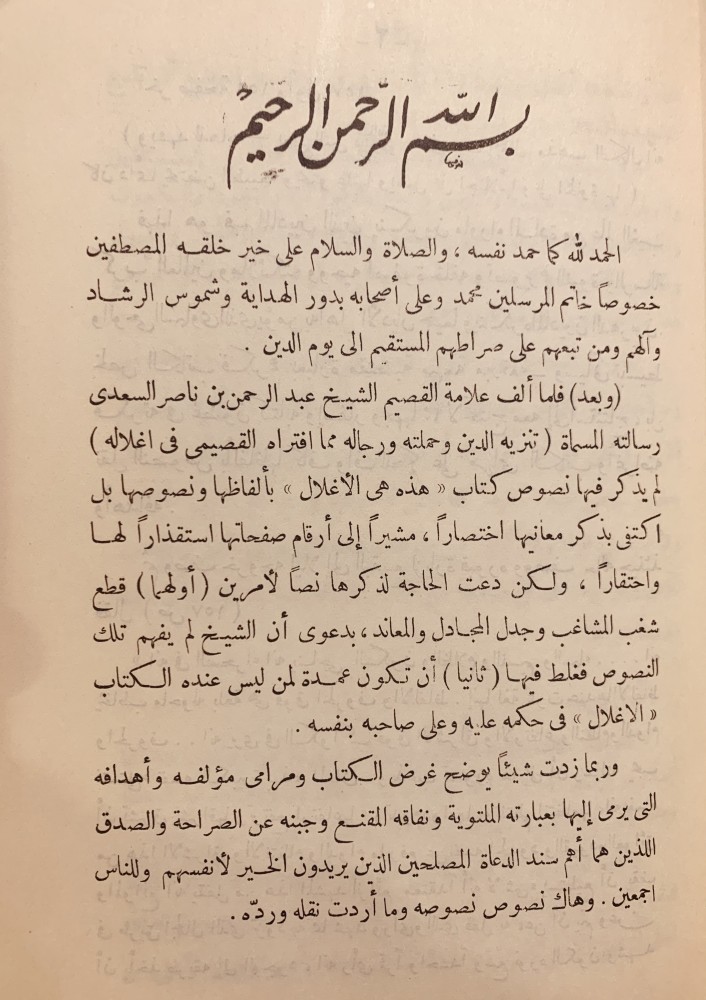 بسم الله الرحمن الرحيم
الحمد لله كما حمد نفسه ، والصلاة والسلام على خير خلقه المصطفين
خصوصاً خاتم المرسلين محمد وعلى أصحابه بدور الهداية وشموس الرشاد
وآلهم ومن تبعهم على صراطهم المستقيم الى يوم الدين .
(وبعد) فلما ألف علامة القصيم الشيخ عبد الرحمن بن ناصر السعدى
رسالته المسماة ( تنزيه الدين وحملته ورجاله مما افتراه القصيمى فى اغلاله )
لم يذكر فيها نصوص كتاب « هذه هى الأغلال » بألفاظها ونصوصها بل
اكتفى بذكر معانيها اختصاراً ، مشيراً إلى أرقام صفحاتها استقذاراً لهـا
واحتقاراً ، ولكن دعت الحاجة لذكرها نصاً لأمرين ( أولهما ) قطع
شغب المشاغب وجدل المجادل والمعاند، بدعوى أن الشيخ لم يفهم تلك
النصوص فغلط فيها ( ثانيا ) أن تكون عمدة لمن ليس عنده الكتاب
« الاغلال » فى حكمه عليه وعلى صاحبه بنفسه .
وربما زدت شيئاً يوضح غرض الكتاب ومرامى مؤلفه وأهدافه
التى يرمى إليها بعبارته الملتوية ونفاقه المقنع وجبنه عن الصراحة والصدق
اللذين هما أهم سند الدعاة المصلحين الذين يريدون الخير لأنفسهم وللناس
اجمعين . وهاك نصوص نصوصه وما أردت نقله وردّه .